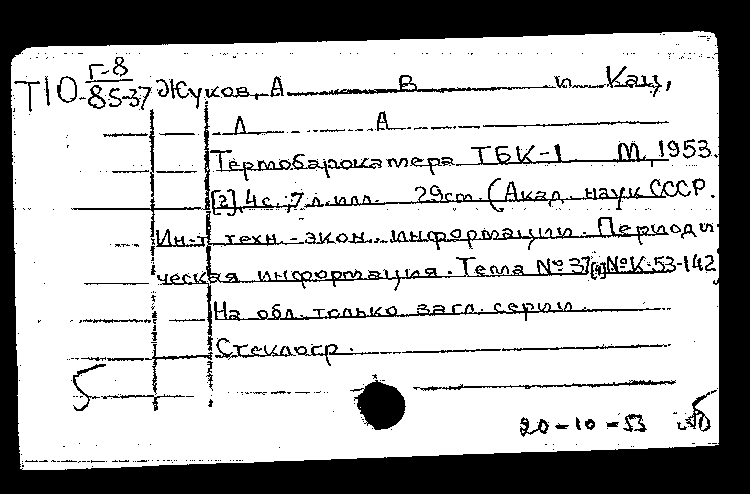 Г-8
Т10-85-37 Жуков, А В и Кац,
Л А
Термобарокамера ТБК-1 М, 1953.
[2], 4 с.; 7 л. илл. 29 cm. (Акад. наук СССР.
Ин-т техн.-экон. информации. Периоди-
ческая информация. Тема № 37[9] № К-53-142
На обл. только загл. серии.
Стеклогр.
20-10-53